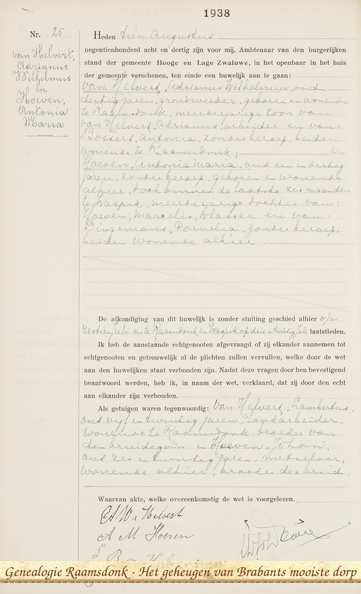 1938
Nr. 25
van Helvert,
Adrianus
Wilhelmus
en
Hoeven,
Antonia
Maria
Heden tien Augustus
negentienhonderd acht en dertig zijn voor mij, Ambtenaar van den burgerlijken
stand der gemeente Hooge en Lage Zwaluwe, in het openbaar in het huis
der gemeente verschenen, ten einde een huwelijk aan te gaan:
van Helvert, Adrianus Wilhelmus, oud
dertig jaren, grondwerker, geboren en wonende
te Raamsdonk, meerderjarige zoon van
van Helvert, Adrianus, arbeider en van
Antonia, zonder beroep, beiden
wonende te Raamsdonk, en
Hoeven, Antonia Maria, oud een en dertig
jaren, zonder beroep, geboren en wonende
alhier, doch binnen de laatste zes maanden
te Waspik, meerderjarige dochter van
Hoeven, Marcelis, en van
Cornelia, zonder beroep,
beiden wonende alhier
De afkondiging van dit huwelijk is zonder stuiting geschied alhier op
Juli te Raamsdonk en Waspik op laatstleden.
Ik heb de aanstaande echtgenooten afgevraagd of zij elkander aannemen tot
echtgenooten en getrouwelijk al de plichten zullen vervullen, welke door de wet
aan den huwelijken staat verbonden zijn. Nadat deze vragen door hen bevestigend
beantwoord werden, heb ik, in naam der wet, verklaard, dat zij door den echt
aan elkander zijn verbonden.
Als getuigen waren tegenwoordig: van Helvert, Lambertus,
oud vijf en twintig jaren, landarbeider,
wonende te Raamsdonk, broeder van
den bruidegom en Hoeven, Johan,
oud zes en twintig jaren,
wonende alhier, broeder der bruid
Waarvan akte, welke overeenkomstig de wet is voorgelezen.
A W v Helvert
A M Hoeven
Genealogie Raamsdonk - Het geheugen van Brabants mooiste dorp